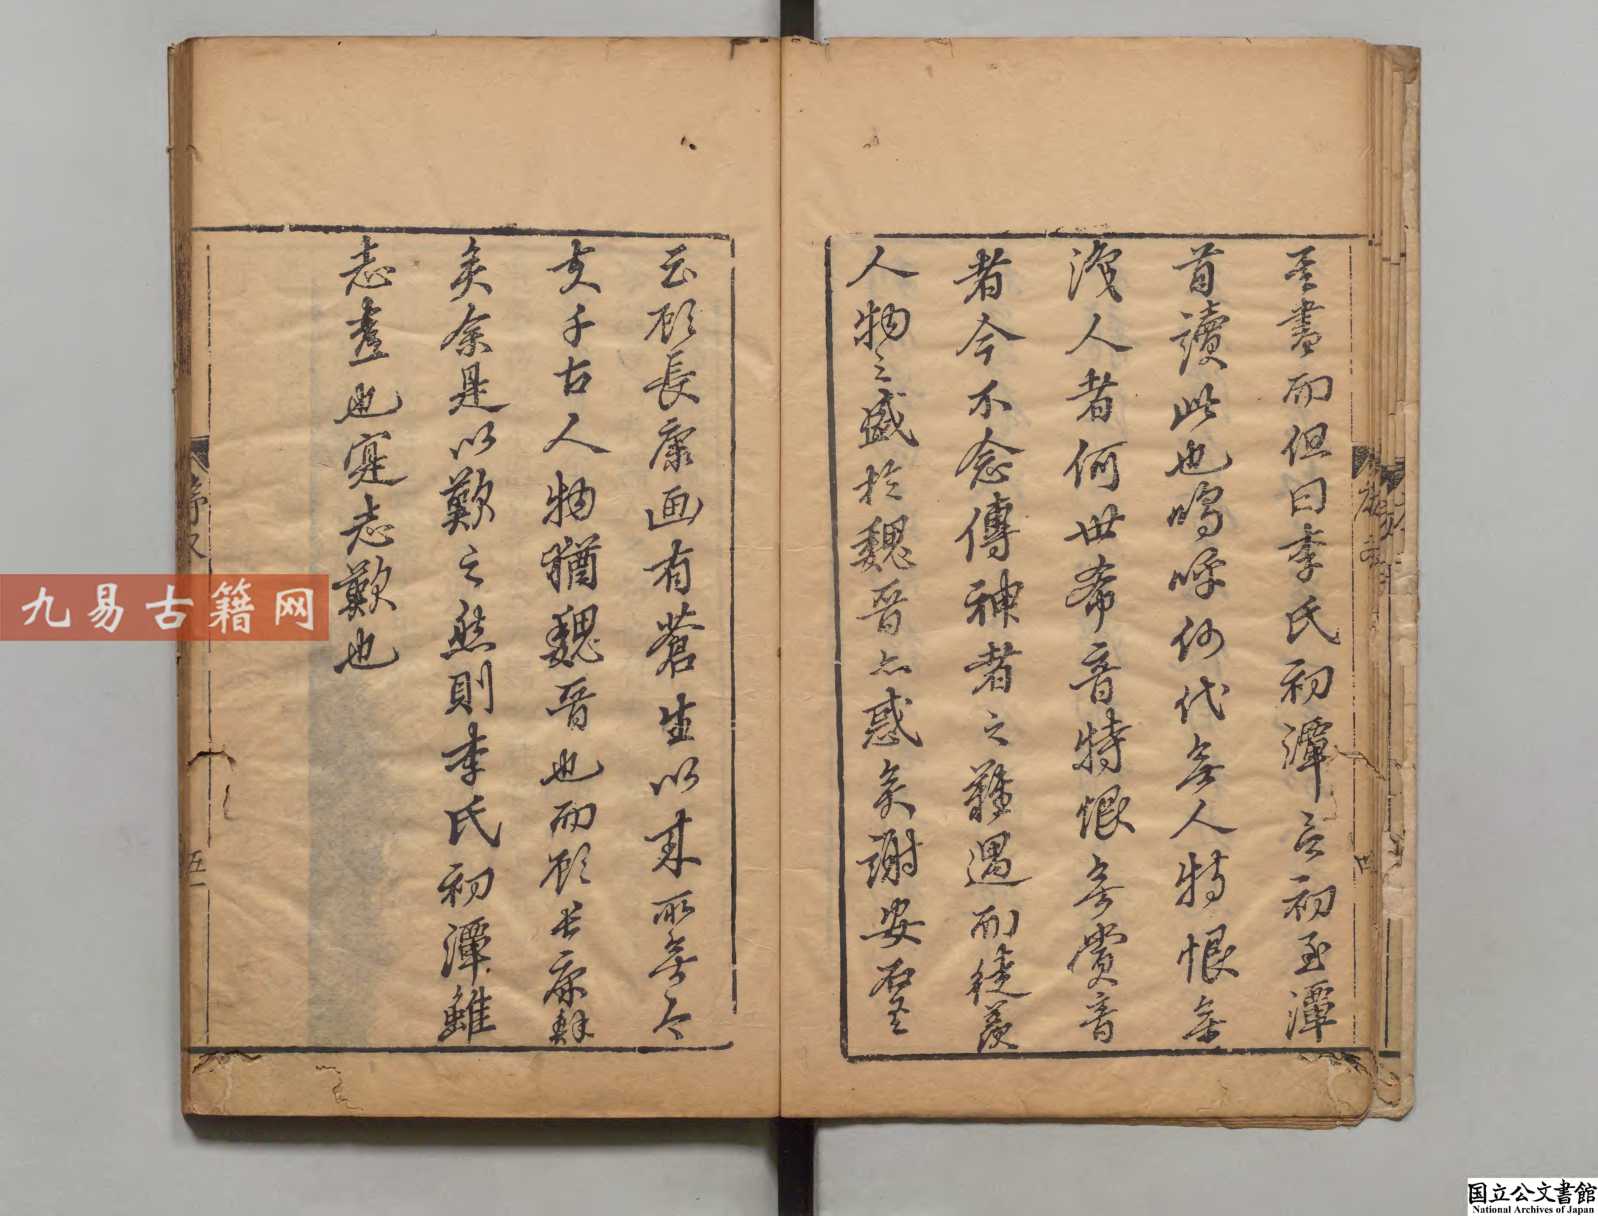 吾書而但曰李氏初潭言初至潭
首讀此也嗚呼何代無人特恨無
識人者何世希音特恨無賞音
者今不念傳神者之難遇而徒羨
人物之盛於魏晉亦惑矣謝安石
云顧長康画有蒼生以來所無今
夫千古人物猶魏晉也而顧長康鮮
矣余是以歎之然則李氏初潭雖
志畫也寔志歎也
五
九易古籍网
国立公文書館
National Archives of Japan